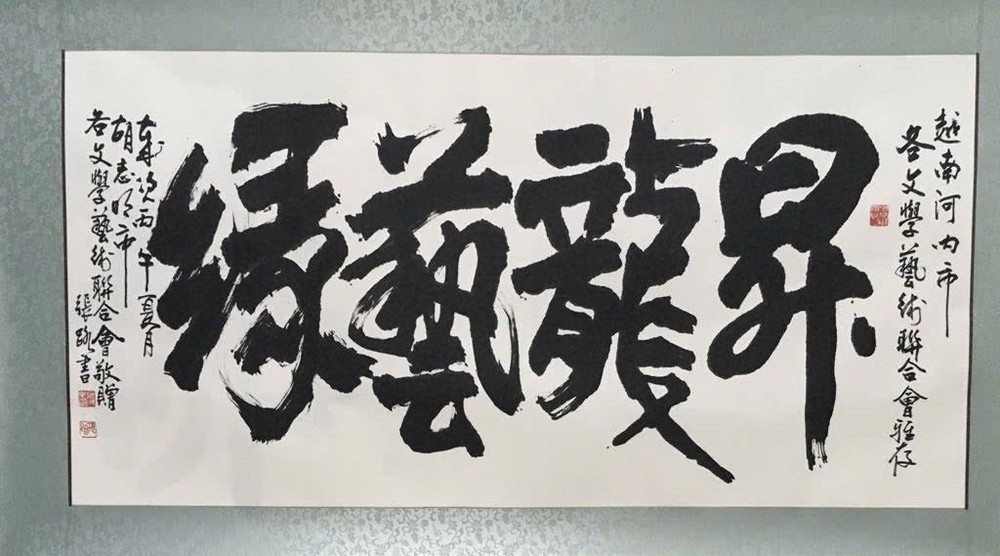 越南河內市
各文學藝術聯合會雅存
昇龍藝緣
歲次丙午夏月
胡志明市
各文學藝術聯合會敬贈
張路書